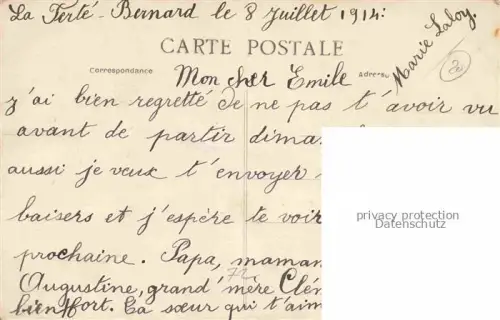 La Ferté-Bernard le 8 Juillet 1914:
CARTE POSTALE
Correspondance
Adresse
Marie Laloy.
20
Mon cher Emile
j'ai bien regretté de ne pas t'avoir vu
avant de partir diman
aussi je veux t'envoyer
baisers et j'espère te voir
prochaine. Papa, maman
72
Augustine, grand'mère Clém
bien fort. Ta sœur qui t'aim
privacy protection
Datenschutz